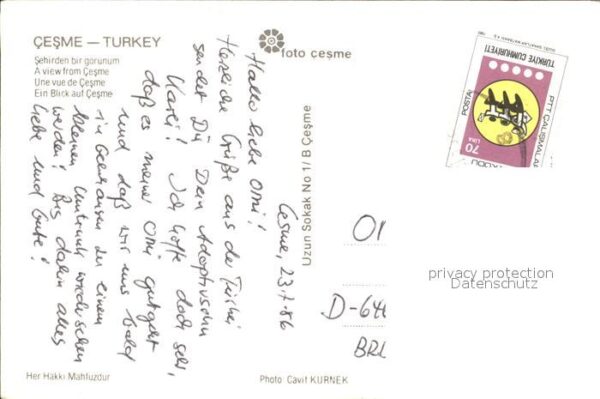 ÇEŞME — TURKEY
Şehirden bir görünüm
A view from Çeşme
Une vue de Çeşme
Ein Blick auf Çeşme
foto çeşme
Çeşme, 23.7.86
Hallo liebe Omi!
Herzliche Grüße aus der Türkei
sendet Dir Dein Adoptivsohn
Ich hoffe doch sehr,
daß es meiner Omi gut geht
und daß wir uns bald
in einem
kleinen Umtrunk wiedersehen
werden! Bis dahin alles
Liebe und Gute!
Uzun Sokak No 1/B Çeşme
TÜRKİYE CUMHURİYETİ
POSTA
PTT ÇALIŞMALAR
70
LİRA
D-646
privacy protection
Datenschutz
Her Hakkı Mahfuzdur
Photo Cavit KÜRNEK